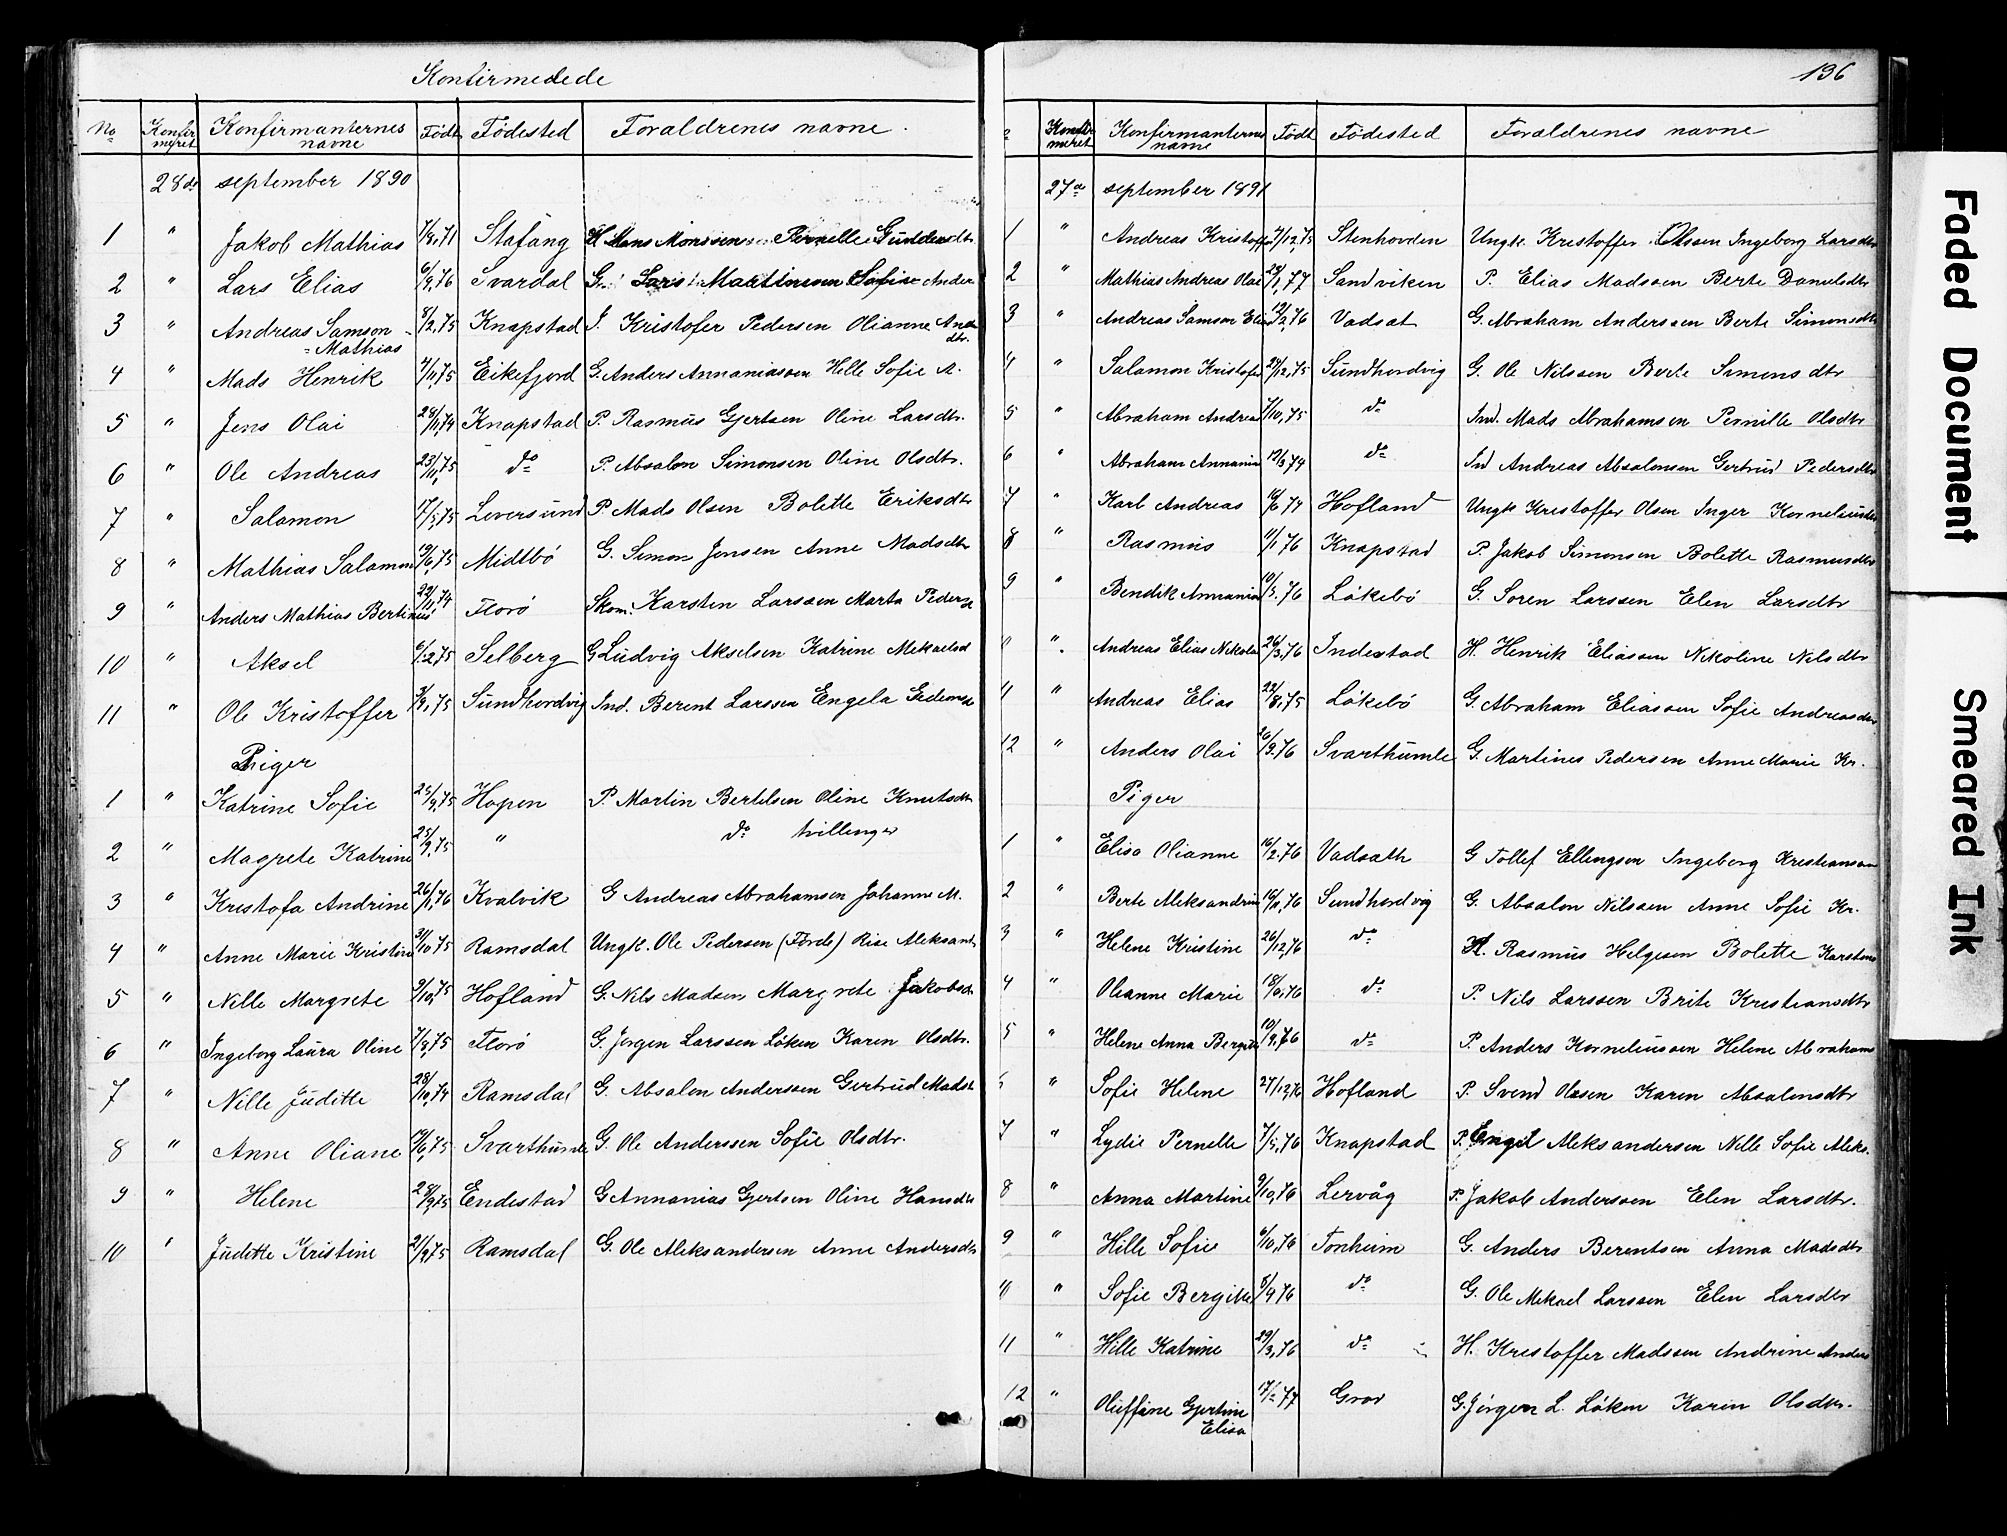 Konfirmedede
No Konfirmeret Konfirmanternes navne Født Fødested Foraldrenes navne.
28de september 1890
1 " Jakob Mathias 7/8,71 Stafang H Hans Monssen Pernelle Guddersdtr
2 " Lars Elias 6/9,76 Svardal G. Lars Martinssen Sofie Ander
3 " Andreas Samson Knapstad J. Kristofer Pedersen Olianne And
= Mathias dtr.
4 " Mads Henrik 7/11,75 Eikefjord G. Anders Annaniassen Helle Sofie A.
5 " Jens Olai 28/11,74 Knapstad P. Rasmus Gjertsen Oline Larsdtr.
6 " Ole Andreas 23/11,75 do P. Absalon Simonsen Oline Olsdtr.
7 " Salamon 17/5,75 Leversund P. Mads Olsen Bolette Eriksdtr
8 " Mathias Salamon 19/6,75 Midtbö G. Simon Jensen Anne Madsdtr
9 " Anders Mathias Bertinus 29/11,74 Florø Skom. Karsten Larssen Marta Peders
10 " Aksel 6/12,75 Selberg G Ludvig Akselsen Katrine Mekaelsd
11 " Ole Kristoffer 3/9,75 Sundhordvig Ind. Berent Larssen Engela
Piger
1 " Katrine Sofie 25/9,75 Hopen P. Martin Bertelsen Oline Knutsdtr
2 " Magrete Katrine 25/9,75 " do tvillinger
3 " Kristofa Andrine 26/1,76 Kvalvik G Andreas Abrahamsen Johanne M.
4 " Anne Marie Kristine 3/10 75 Ramsdal Ungk. Ole Pedersen (Förde) Rise Aleksant
5 " Nille Margrete 9/10,75 Hofland G. Nils Madsen Margrete Jakobsd
6 " Ingeborg Laura Oline 7/9,75 Florø G. Jørgen Larssen Løken Karen Olsdtr.
7 " Nille Juditte 28/10,74 Ramsdal G. Absalon Anderssen Gertrud Madsd
8 " Anne Oliane 19/6,75 Svarthumle G. Ole Anderssen Sofie Olsdtr.
9 " Helene 28/9,75 Endestad G Annanias Gjertsen Oline Hansdtr
10 " Juditte Kristine 21/9,75 Ramsdal G. Ole Aleksandersen Anne Andersdtr
136
Konfirmeret Konfirmanternes navne Født Fødested Foraldrenes navne
27de september 1891
1 " Andreas Kristoffer 7/12,75 Stenhovden Ungk. Kristoffer Olsen Ingeborg Larsdtr
2 " Mathias Andreas Olai 29/1,77 Sandviken P. Elias Madssen Berte Danielsdtr
3 " Andreas Samson Elias 19/2,76 Vadsat G. Abraham Anderssen Berte Simonsdtr
4 " Salamon Kristofer 29/12,75 Sundhordvig G. Ole Nilssen Berte Simonsdtr
5 " Abraham Andreas 7/10,75 do Ind. Mads Abrahamsen Pernille Olsdtr
6 " Abraham Annanias 12/3 74 do Ind Andreas Absalonsen Gertrud Pedersdtr
7 " Karl Andreas 10/6 74 Hofland Ungk Kristoffer Olsen Inger Korneliusdtr
8 " Rasmus 11/1 76 Knapstad P. Jakob Simonsen Bolette Rasmusdtr
9 " Bendik Annanias 10/5.76 Løkebö G. Soren Larssen Elen Larsdtr
" " Andreas Elias Nikolai 26/3,76 Indestad H. Henrik Eliassen Nikoline Nilsdtr
11 " Andreas Elias 22/8,75 Løkebö G. Abraham Eliassen Sofie Andreasdtr
12 " Anders Olai 26/9.76 Svarthumle G. Martines Pedersen Anne Marie Kr.
Piger
1 " Elisa Olianne 16/2,76 Vadsath G Tollef Ellingsen Ingeborg Kristiansen
2 " Berte Aleksandrine 16/11,76 Sundhordvig G. Absalon Nilssen Anne Sofie Kr.
3 " Helene Kristine 26/12,76 do H. Rasmus Helgesen Bolette Karstens
4 " Olianne Marie 18/10,76 do P. Nils Larssen Brite Kristiansdtr
5 " Helene Anna Bergite 10/9,76 do P. Anders Korneliussen Helene Abrahams
6 " Sofie Helene 27/12,76 Hofland P. Svend Olssen Karen Absalonsdtr
7 " Lydie Pernelle 7/5,76 Knapstad P. Engel Aleksandersen Nille Sofie Aleks.
8 " Anna Martine 9/10,76 Lervåg P. Jakob Anderssen Elen Larsdtr.
9 " Hille Sofie 6/10,76 Tonheim G. Anders Berentsen Anna Madsdtr
" " Sofie Bergitte 8/9 76 do G. Ole Mekael Larssen Elen Larsdtr
11 " Hille Katrine 29/3,76 do H. Kristoffer Madssen Andrine Anders
12 " Oluffine Gjertine 17/2 77 Grov G. Jørgen L. Løken Karin Olsdtr.
Elisa
Faded Document
Smeared Ink